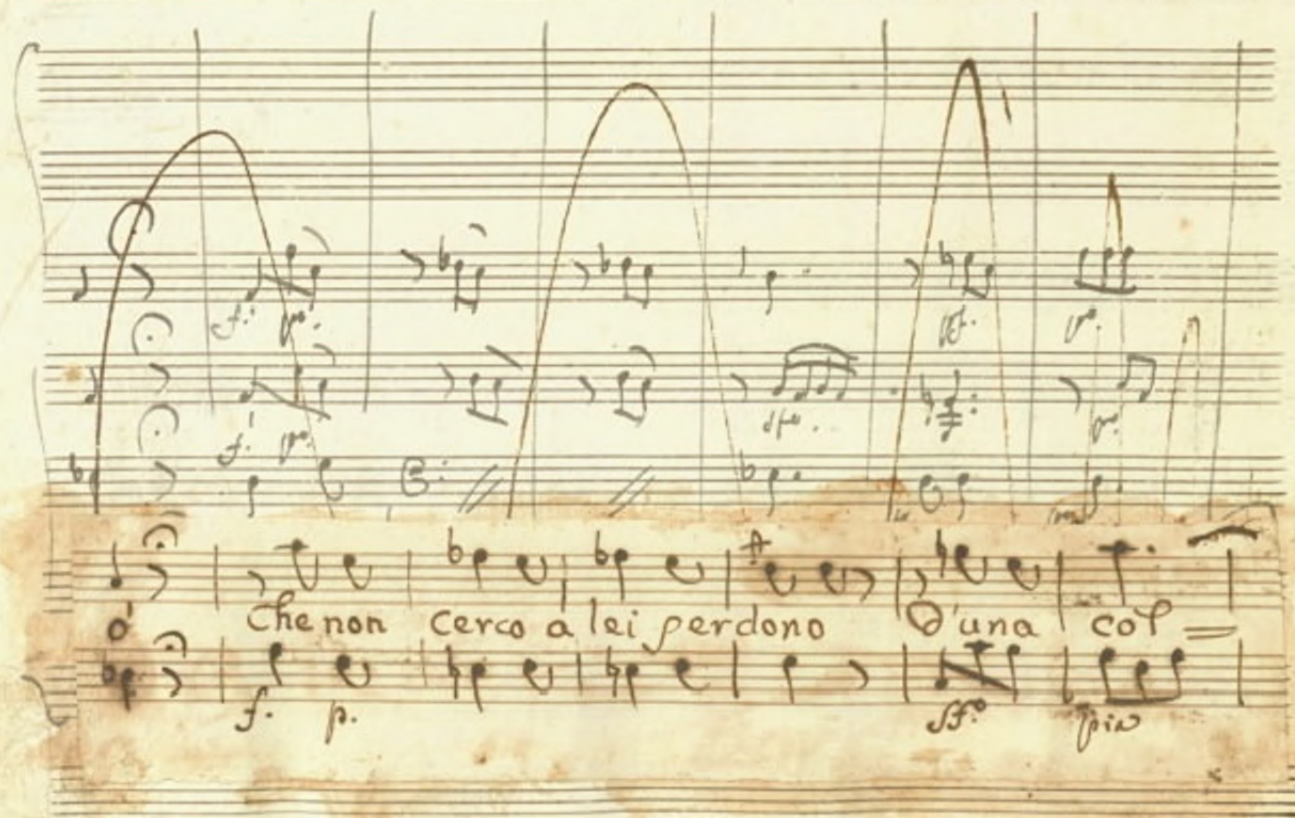 f. po.
pf. po.
f. po.
po.
ò Che non cerco a lei perdono D'una col =
f. p. sf.o pia